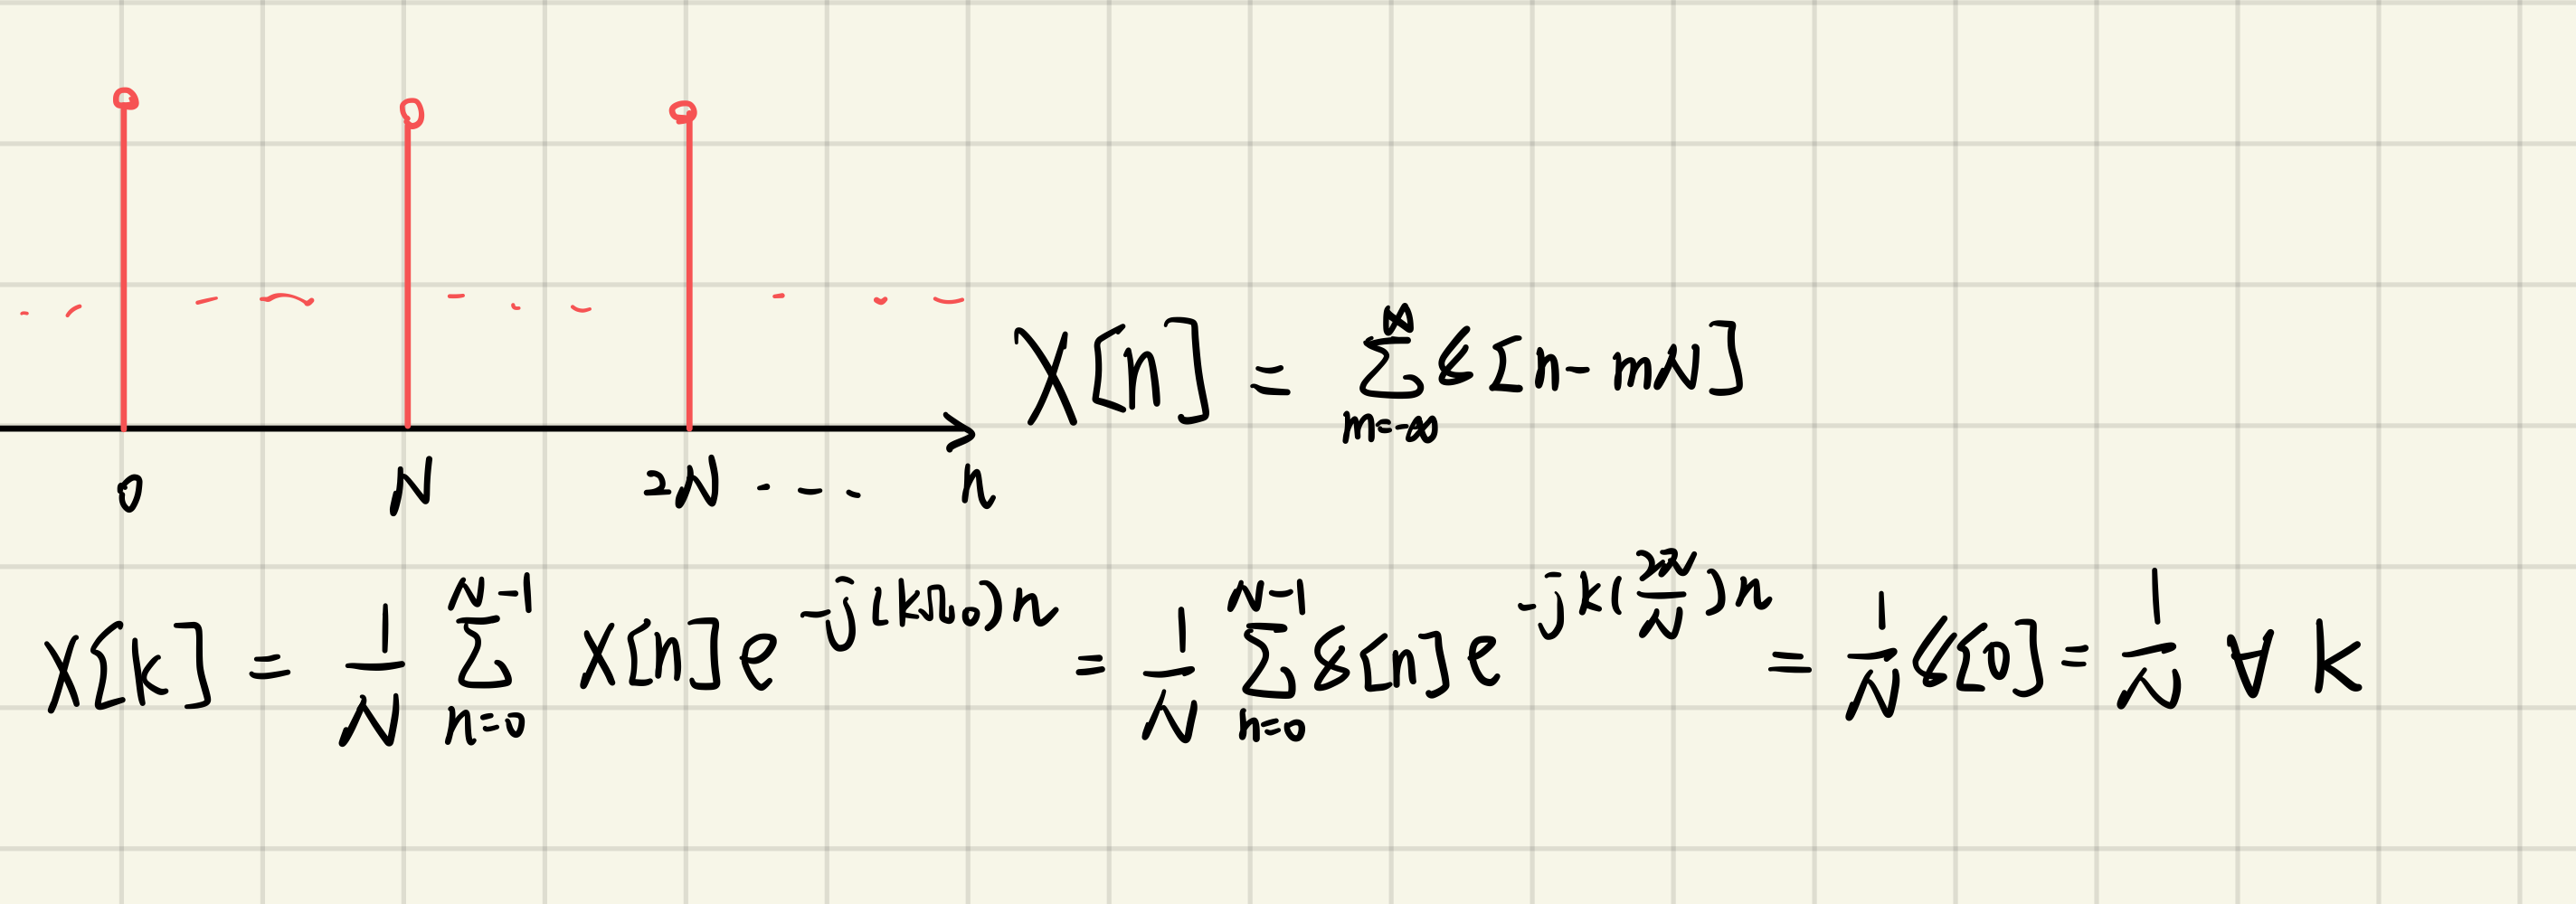 X[n] = ∑_{m=-∞}^{∞} δ[n-mN]
0 N 2N --- n
X[k] = 1/N ∑_{n=0}^{N-1} x[n]e^{-j(kΩ₀)n} = 1/N ∑_{n=0}^{N-1} δ[n]e^{-jk(2π/N)n} = 1/N δ[0] = 1/N ∀ k